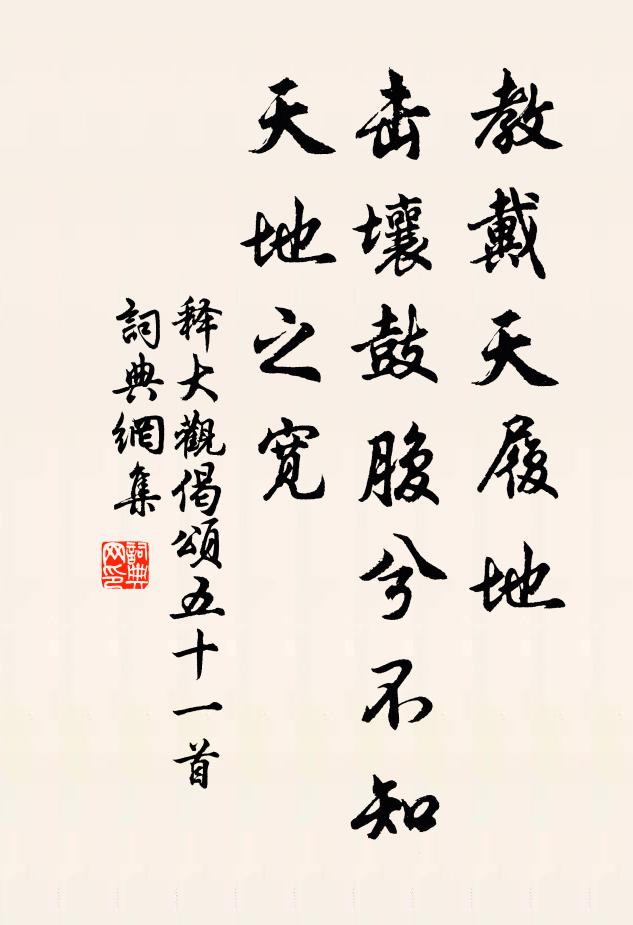 教戴天履地
击壤鼓腹兮不知
天地之宽
释大觀偈頌五十一首
詞典網集
詞典网印